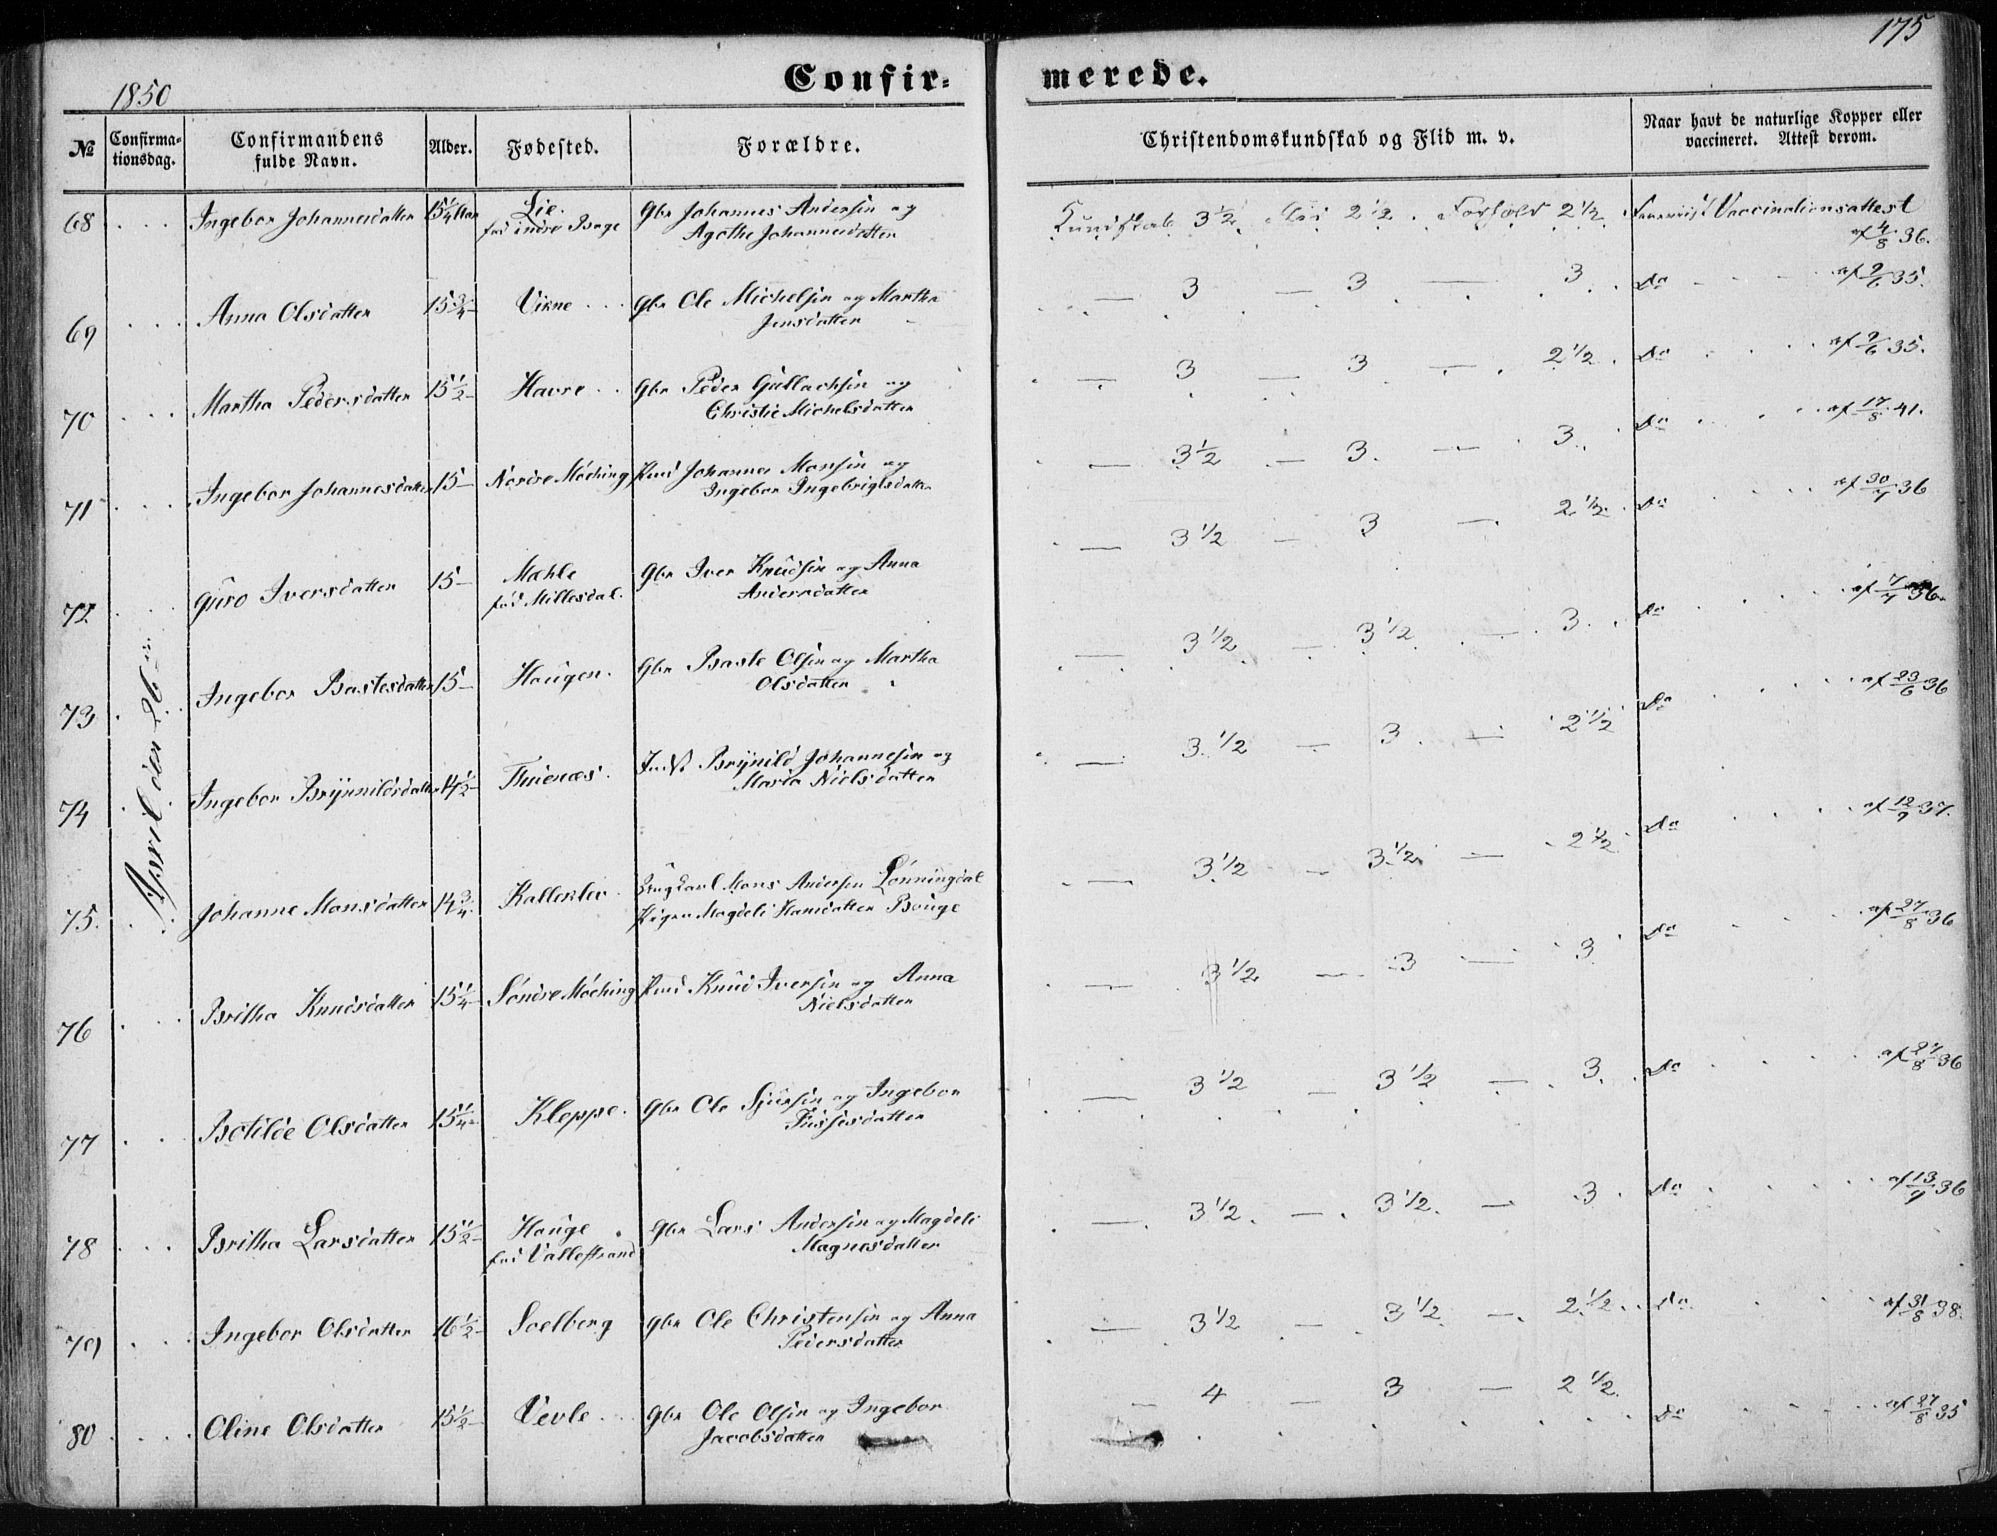 175
1850
Confir= merede.
№ Confirma-tionsdag. Confirmandens fulde Navn. Alder. Fødested. Forældre. Christendomskundskab og Flid m. v. Naar havt de naturlige Kopper eller vaccineret. Attest derom.
April den 26
68 Ingebor Johannesdatter 15 1/4 Lie. Gbr Johannes Andersen og Kundskab 3 1/2. Flid 2 1/2. Forhold 2 1/2. Vaccinationsattest
fød indre Bøge Agathe Johannesdatter af 4/8 36.
69 Anna Olsdatter 15 3/4 Vikne Gbr Ole Michelsen og Martha — 3 — 3 — 3. Do af 2/6 35.
Jensdatter
70 Martha Pedersdatter 15 1/2 Havre Gbr Peder Gullachsen og — 3 — 3 — 2 1/2. Do af 2/6 35.
Christie Michelsdatter
71 Ingebor Johannesdatter 15 Nordre Møching Pmd Johannes Monsen og — 3 1/2 — 3. — 3. Do af 17/8 41.
Ingebor Ingebrigtsdatter
72 Guro Iversdatter 15 Mæhle Gbr Iver Knudsen og Anna — 3 1/2 — 3 — 2 1/2. Do af 30/7 36
fød Millesdal. Andersdatter
73 Ingebor Bastesdatter 15 Haugen. Gbr Baste Olsen og Martha — 3 1/2 — 3 1/2. — 3. Do af 7/7 36.
Olsdatter
74 Ingebor Brynnildsdatter 14 1/2 Thuenæs. Indst Brynild Johannesen og — 3 1/2 — 3. — 2 1/2 Do af 23/6 36
Marta Nielsdatter
75. Johanne Monsdatter 14 3/4 Kalleklev Ungkarl Mons Andersen Lønningdal — 3 1/2 — 3 1/2. — 2 1/2 Do af 12/9 37.
Pigen Magdeli Hansdatter Bouge
76 Britha Knudsdatter 15 1/4 Søndre Møching Pmd Knud Iversen og Anna — 3 1/2 — 3 — 3. Do af 27/8 36
Nielsdatter
77 Botilde Olsdatter 15 1/4 Kleppe. Gbr Ole Sjursen og Ingebor — 3 1/2 — 3 1/2 — 3. Do af 27/8 36
78 Britha Larsdatter 15 1/2 Hauge Gbr Lars Andersen og Magdeli — 3 1/2. — 3 1/2. — 3. Do af 13/9 36
fød Vallestrand Magnesdatter
79 Ingebor Olsdatter 16 1/2 Soelberg Gbr Ole Christensen og Anna — 3 1/2 — 3 1/2. — 2 1/2. Do af 31/8 38.
Pedersdatter
80 Oline Olsdatter 15 1/2 Vevle Gbr Ole Olsen og Ingebor — 4 — 3 — 2 1/2. Do af 27/8 35
Jacobsdatter